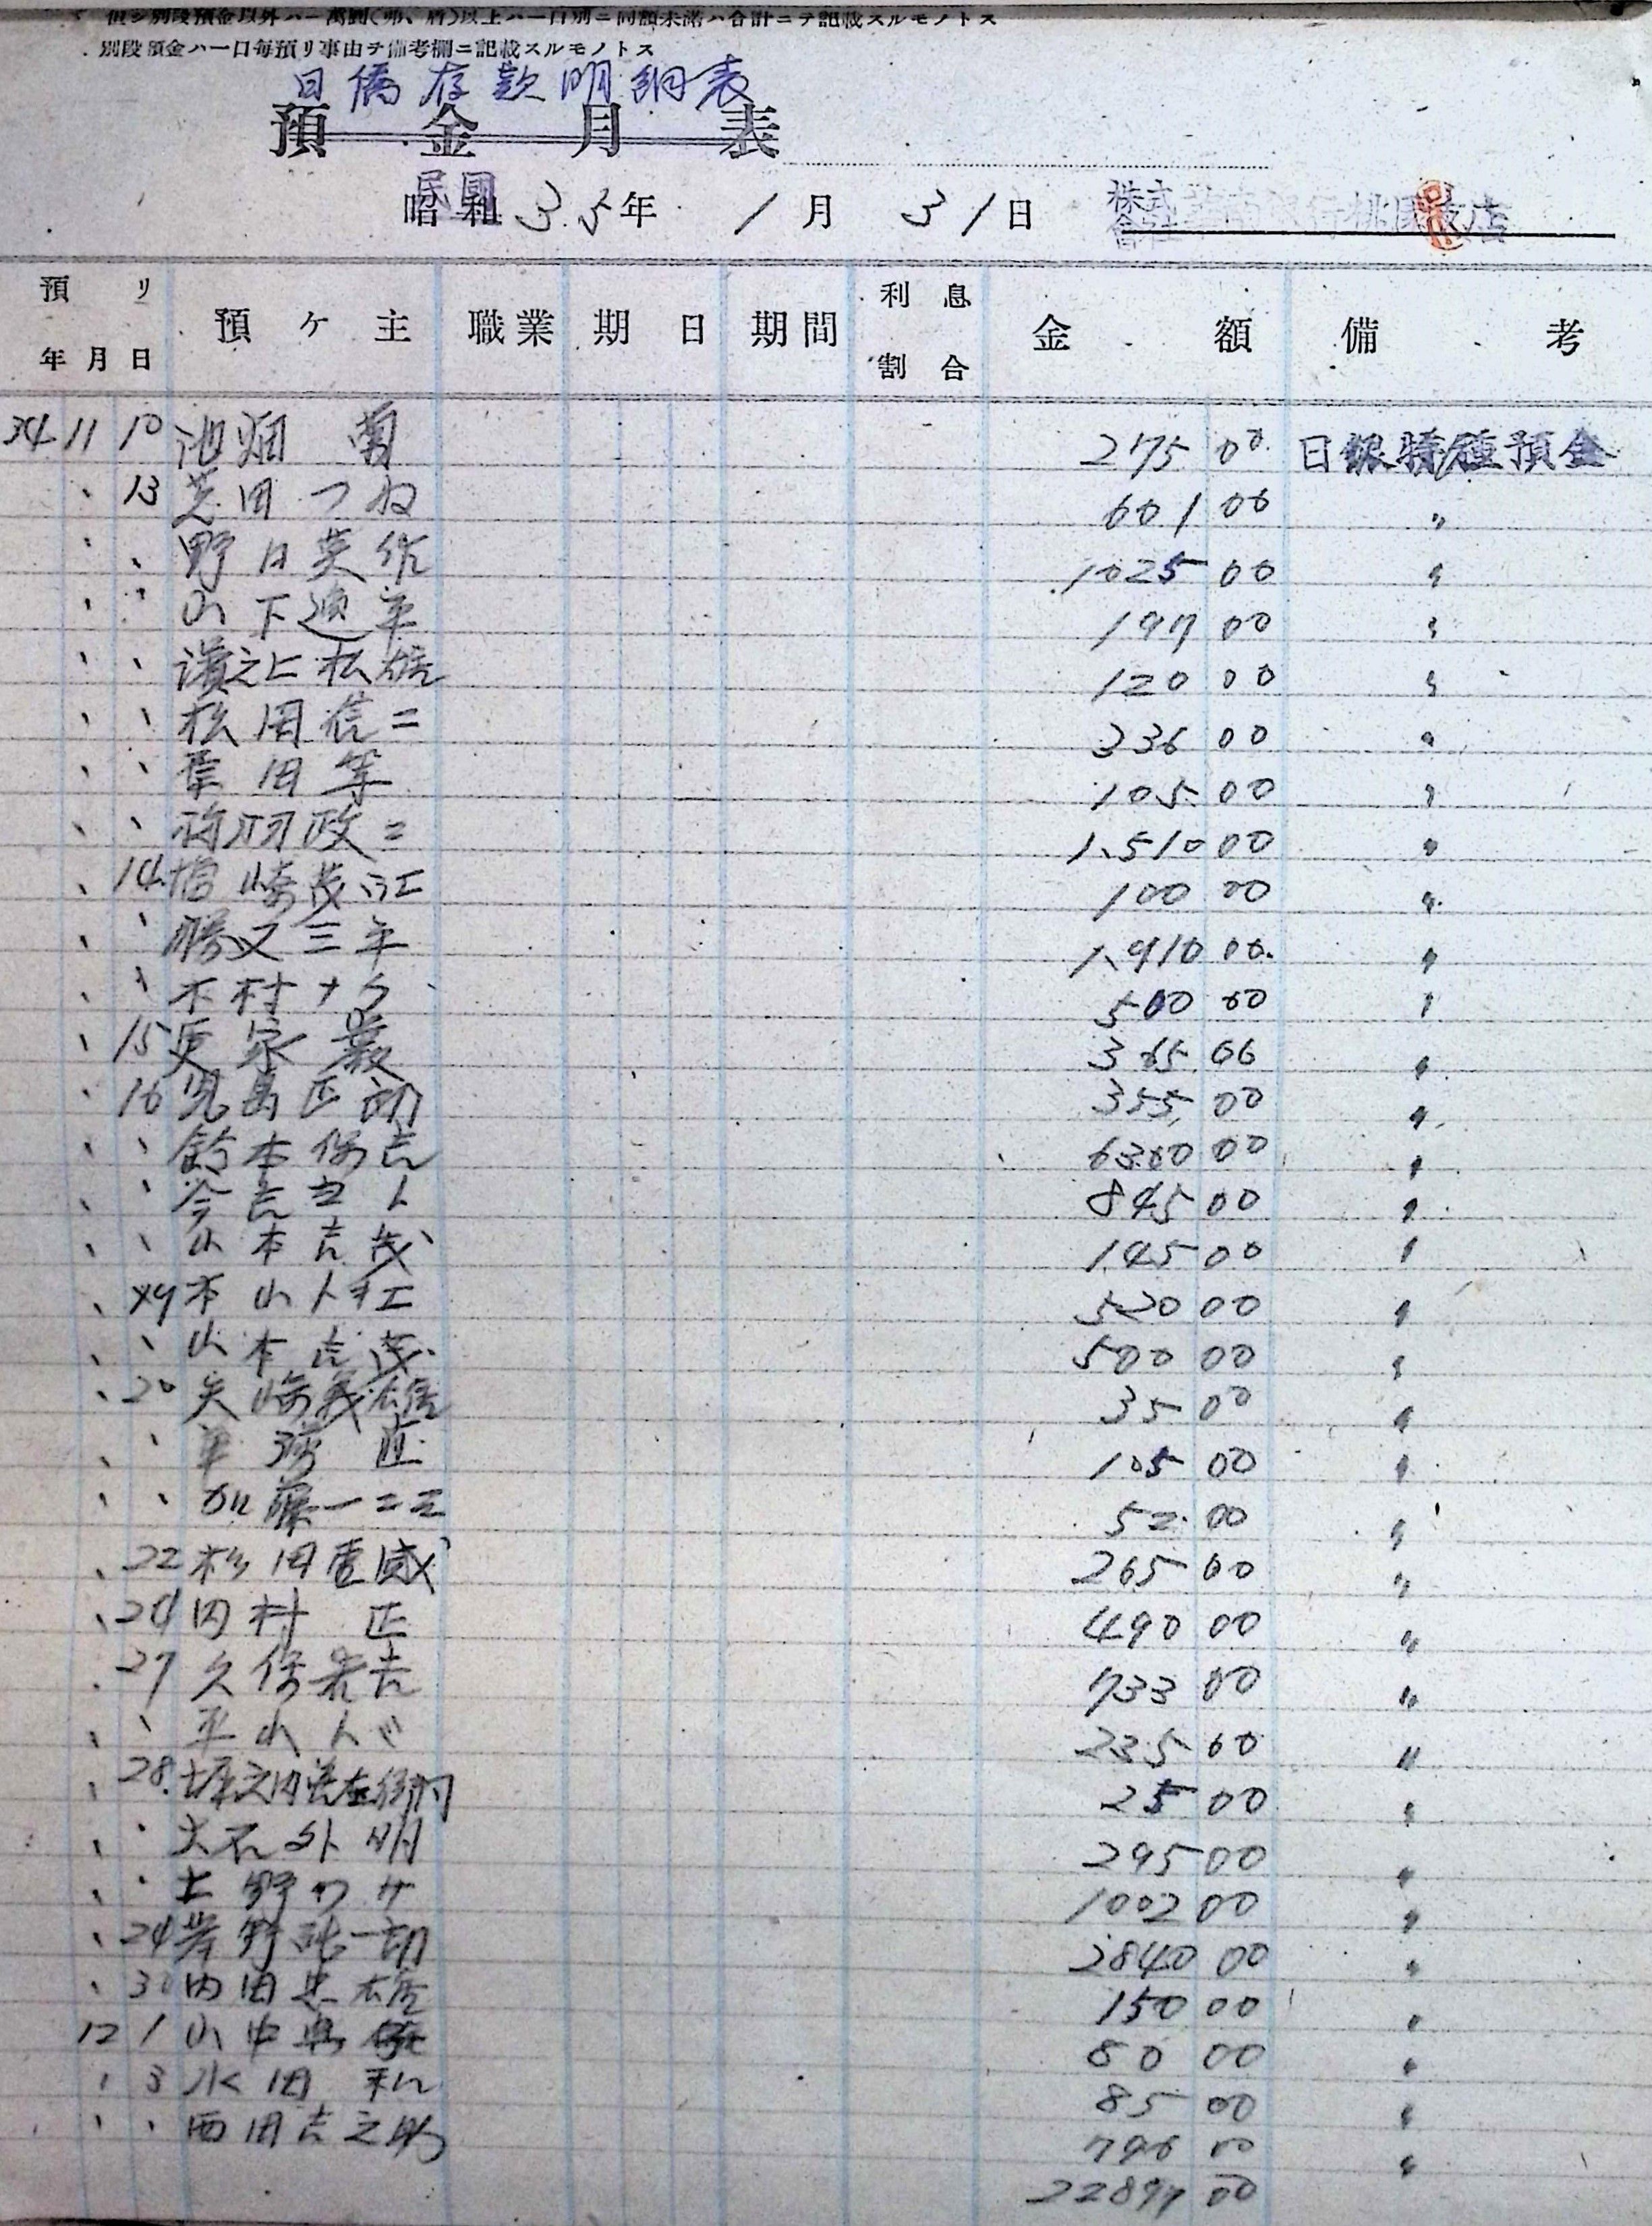 但シ別段預金以外ハ一萬圓(弗、盾)以上ハ一口別ニ同額未滿ハ合計ニテ記載スルモノトス
別段預金ハ一口每預リ事由ヲ備考欄ニ記載スルモノトス
日僑存款明細表
預金月表
民國
昭和 35年 1月 31日 株式會社 銀行桃園支店
預リ年月日 預ケ主 職業 期日 期間 利息割合 金額 備考
34 11 10 池畑 275 00 日銀特種預金
、 13 芝田つね 601 00 〃
、 、 野日英作 1025 00 〃
、 、 山下 平 197 00 〃
、 、 濱之上松雄 120 00 〃
、 、 松田信二 336 00 〃
、 、 田等 105 00 〃
、 、 政二 1、510 00 〃
、 14 崎茂江 100 00 〃
、 、 勝又三平 1、910 00 〃
、 、 木村ナク 500 00 〃
、 15 更家巖 365 00 〃
、 16 児島正郎 355 00 〃
、 、 鈴木保吉 6300 00 〃
、 、 今吉 845 00 〃
、 、 山本吉茂 145 00 〃
、 19 本山 520 00 〃
、 、 山本吉茂 500 00 〃
、 20 矢崎義雄 35 00 〃
、 、 正 105 00 〃
、 、 加藤一二三 52 00 〃
、 22 杉田 威 265 00 〃
、 24 田村正 490 00 〃
、 27 久保 吉 733 00 〃
、 、 平山 235 00 〃
、 28 堀之内 左衛門 25 00 〃
、 、 大石外明 295 00 〃
、 、 上野ワサ 1002 00 〃
、 29 野 一郎 2840 00 〃
、 30 内田忠雄 150 00 〃
12 1 山中 80 00 〃
、 3 水田和 85 00 〃
、 、 西田吉之助 796 00 〃
22897 00